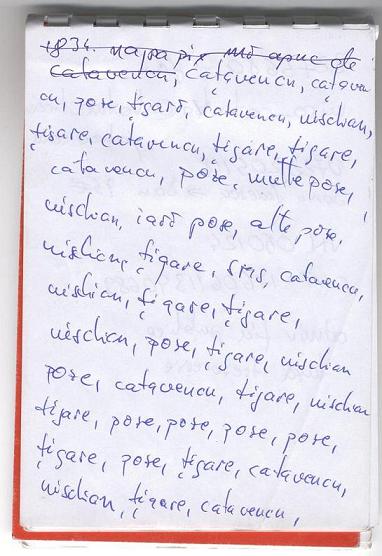 1834. mă apuc de
catavencu, cațavencu, cațaven
cu, poze, țigară, catavencu, nischian,
țigare, catavencu, țigare, țigare,
catavencu, poze, multe poze,
nischian, iară poze, alte poze,
nischian, țigare, sms, catavencu,
nischian, țigare, țigare,
nischian, poze, țigare, nischian
poze, catavencu, țigare, nischian
țigare, poze, poze, poze, poze,
țigare, poze, țigare, catavencu,
nischian, țigare, catavencu,